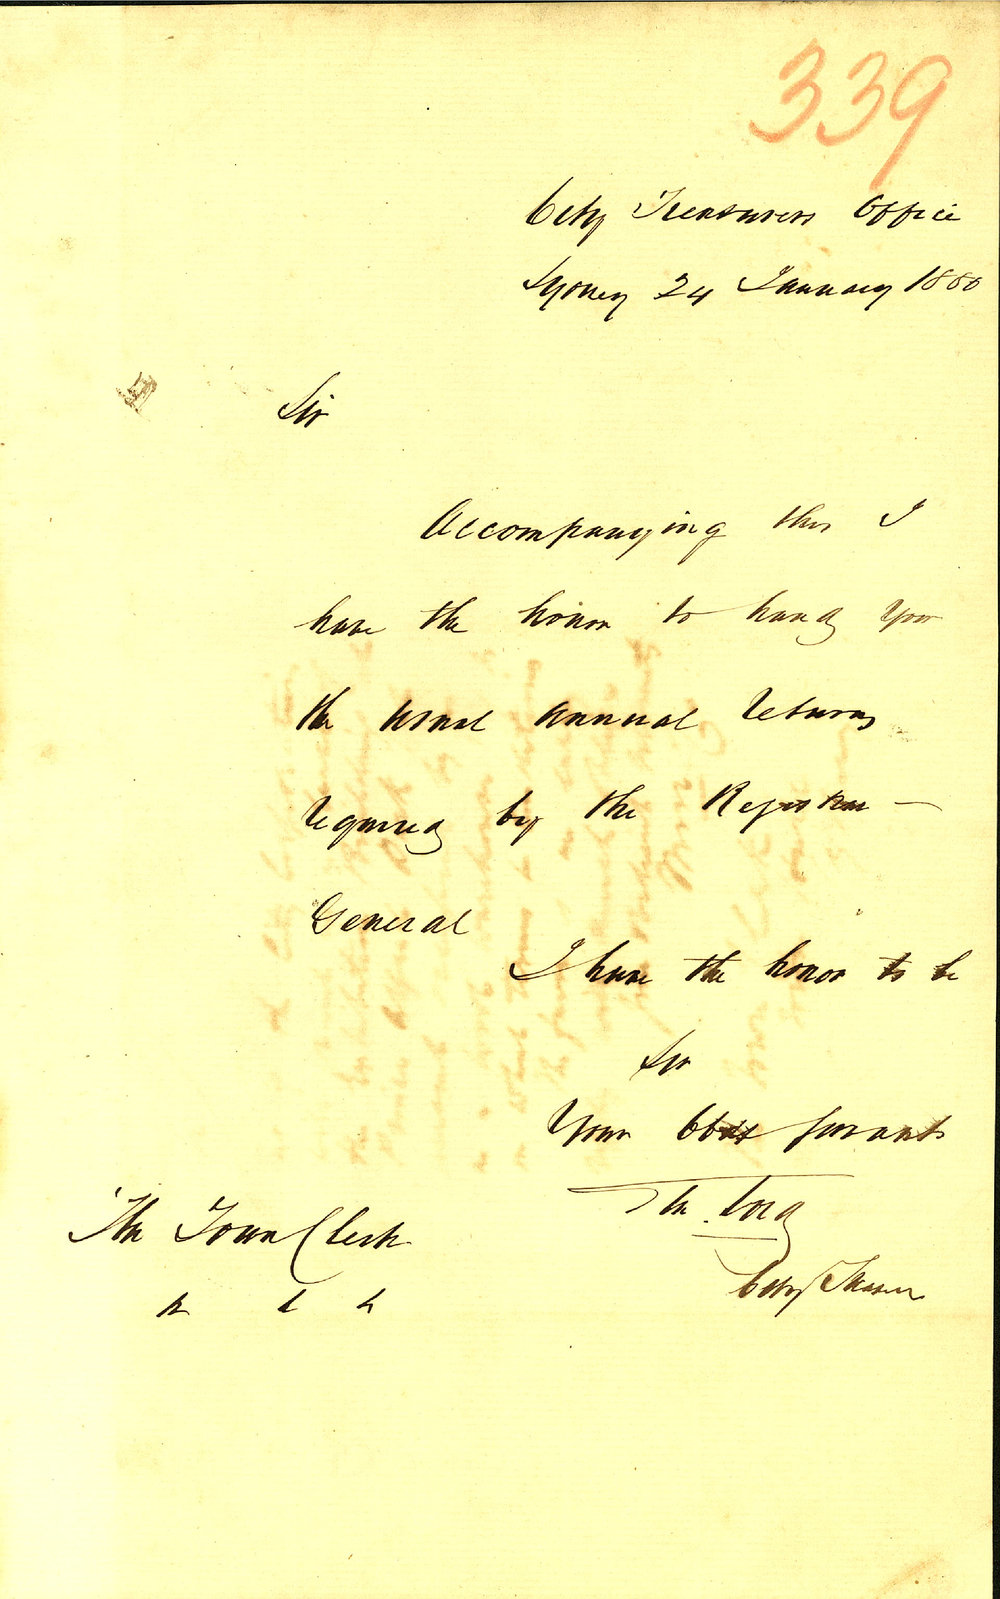 339
City Treasurers Office
Sydney 24 January 1880
Sir
Accompanying this I
have the honor to hand you
the usual annual returns
required by the Registrar –
General
I have the honor to be
Sir
Your Obdt servant
City Treasr
The Town Clerk